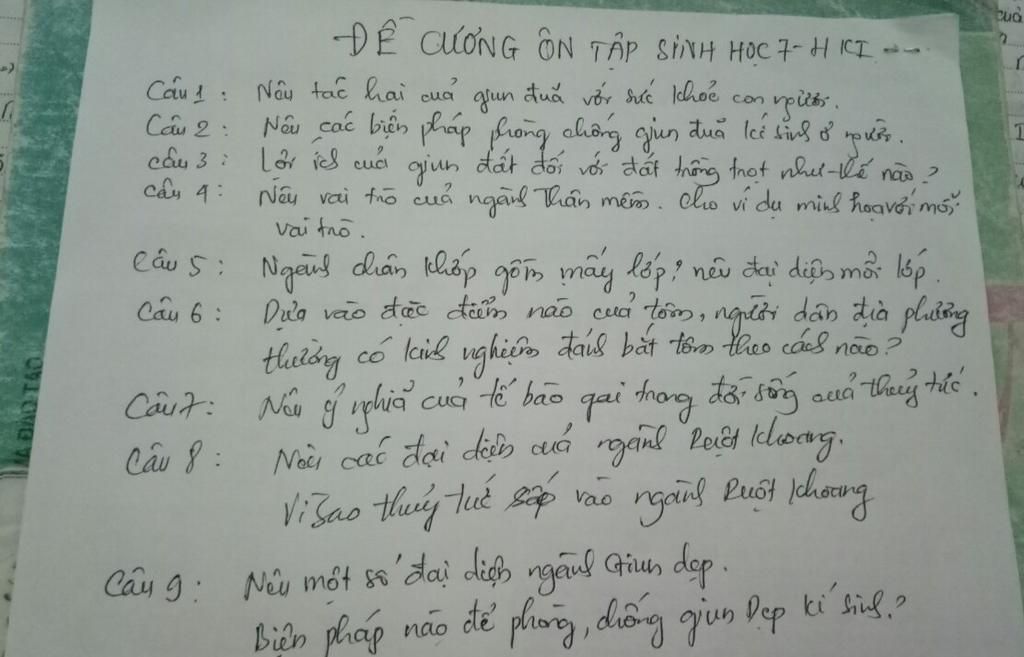 ĐỀ CƯƠNG ÔN TẬP SINH HỌC 7 - HKI
Câu 1 : Nêu tác hại của giun đũa với sức khoẻ con người.
Câu 2 : Nêu các biện pháp phòng chống giun đũa kí sinh ở người.
Câu 3 : Lợi ích của giun đất đối với đất trồng trọt như thế nào?
Câu 4 : Nêu vai trò của ngành Thân mềm. Cho ví dụ minh hoạ với mỗi
vai trò.
Câu 5 : Ngành chân khớp gồm mấy lớp? nêu đại diện mỗi lớp.
Câu 6 : Dựa vào đặc điểm nào của tôm, người dân địa phương
thường có kinh nghiệm đánh bắt tôm theo cách nào?
Câu 7 : Nêu ý nghĩa của tế bào gai trong đời sống của thuỷ tức.
Câu 8 : Nêu các đại diện của ngành Ruột khoang.
Vì sao thuỷ tức sếp vào ngành Ruột khoang
Câu 9 : Nêu một số đại diện ngành Giun dẹp.
Biện pháp nào để phòng, chống giun Dẹp kí sinh?
A ĐÀO TẠO
của